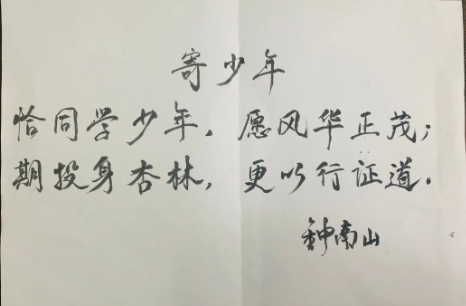 寄少年
恰同学少年，愿风华正茂；
期投身杏林，更以行证道．
钟南山